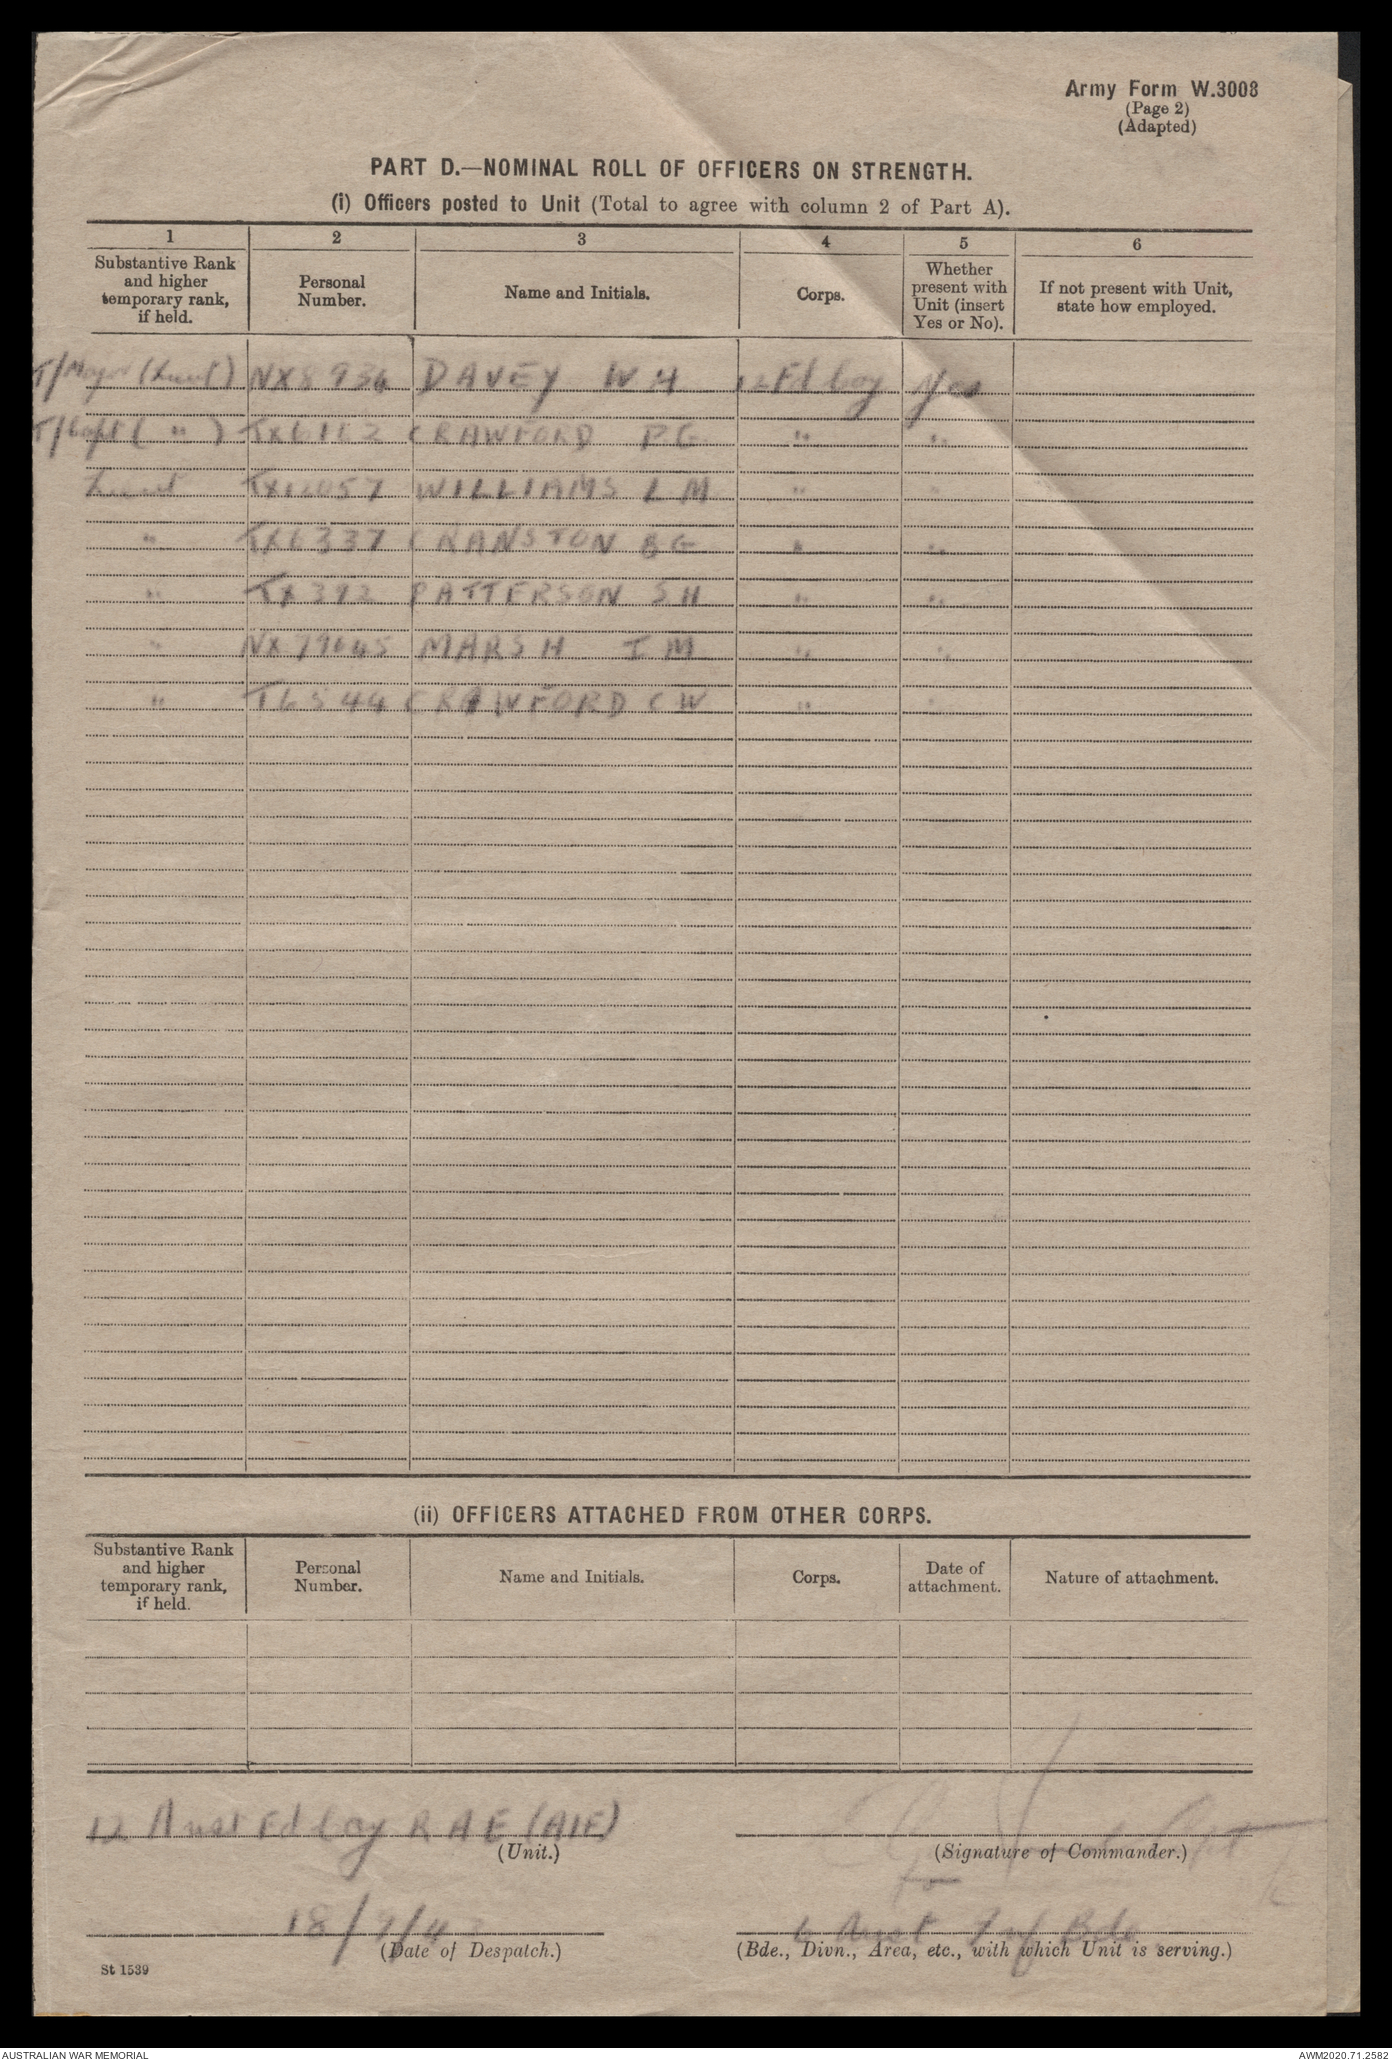 Army Form W.3008
(Page 2)
(Adapted)
PART D.—NOMINAL ROLL OF OFFICERS ON STRENGTH.
(i) Officers posted to Unit (Total to agree with column 2 of Part A).
1 2 3 4 5 6
Substantive Rank and higher temporary rank, if held. Personal Number. Name and Initials. Corps. Whether present with Unit (insert Yes or No). If not present with Unit, state how employed.
T/Major (Lieut) NX8934 DAVEY W H 12 Fd Coy Yes
T/Capt ( " ) CRAWFORD P G " "
Lieut WILLIAMS L M " "
" TX6337 CRANSTON B G " "
" TX392 PATTERSON S H " "
" NX79645 MARSH I M " "
" T6544 CRAWFORD C W " "
(ii) OFFICERS ATTACHED FROM OTHER CORPS.
Substantive Rank and higher temporary rank, if held. Personal Number. Name and Initials. Corps. Date of attachment. Nature of attachment.
12 Aust Fd Coy R A E (AIF)
(Unit.) (Signature of Commander.)
for
18/9/43 6 Aust Inf Bde
(Date of Despatch.) (Bde., Divn., Area, etc., with which Unit is serving.)
St 1539
AUSTRALIAN WAR MEMORIAL AWM2020.71.2582